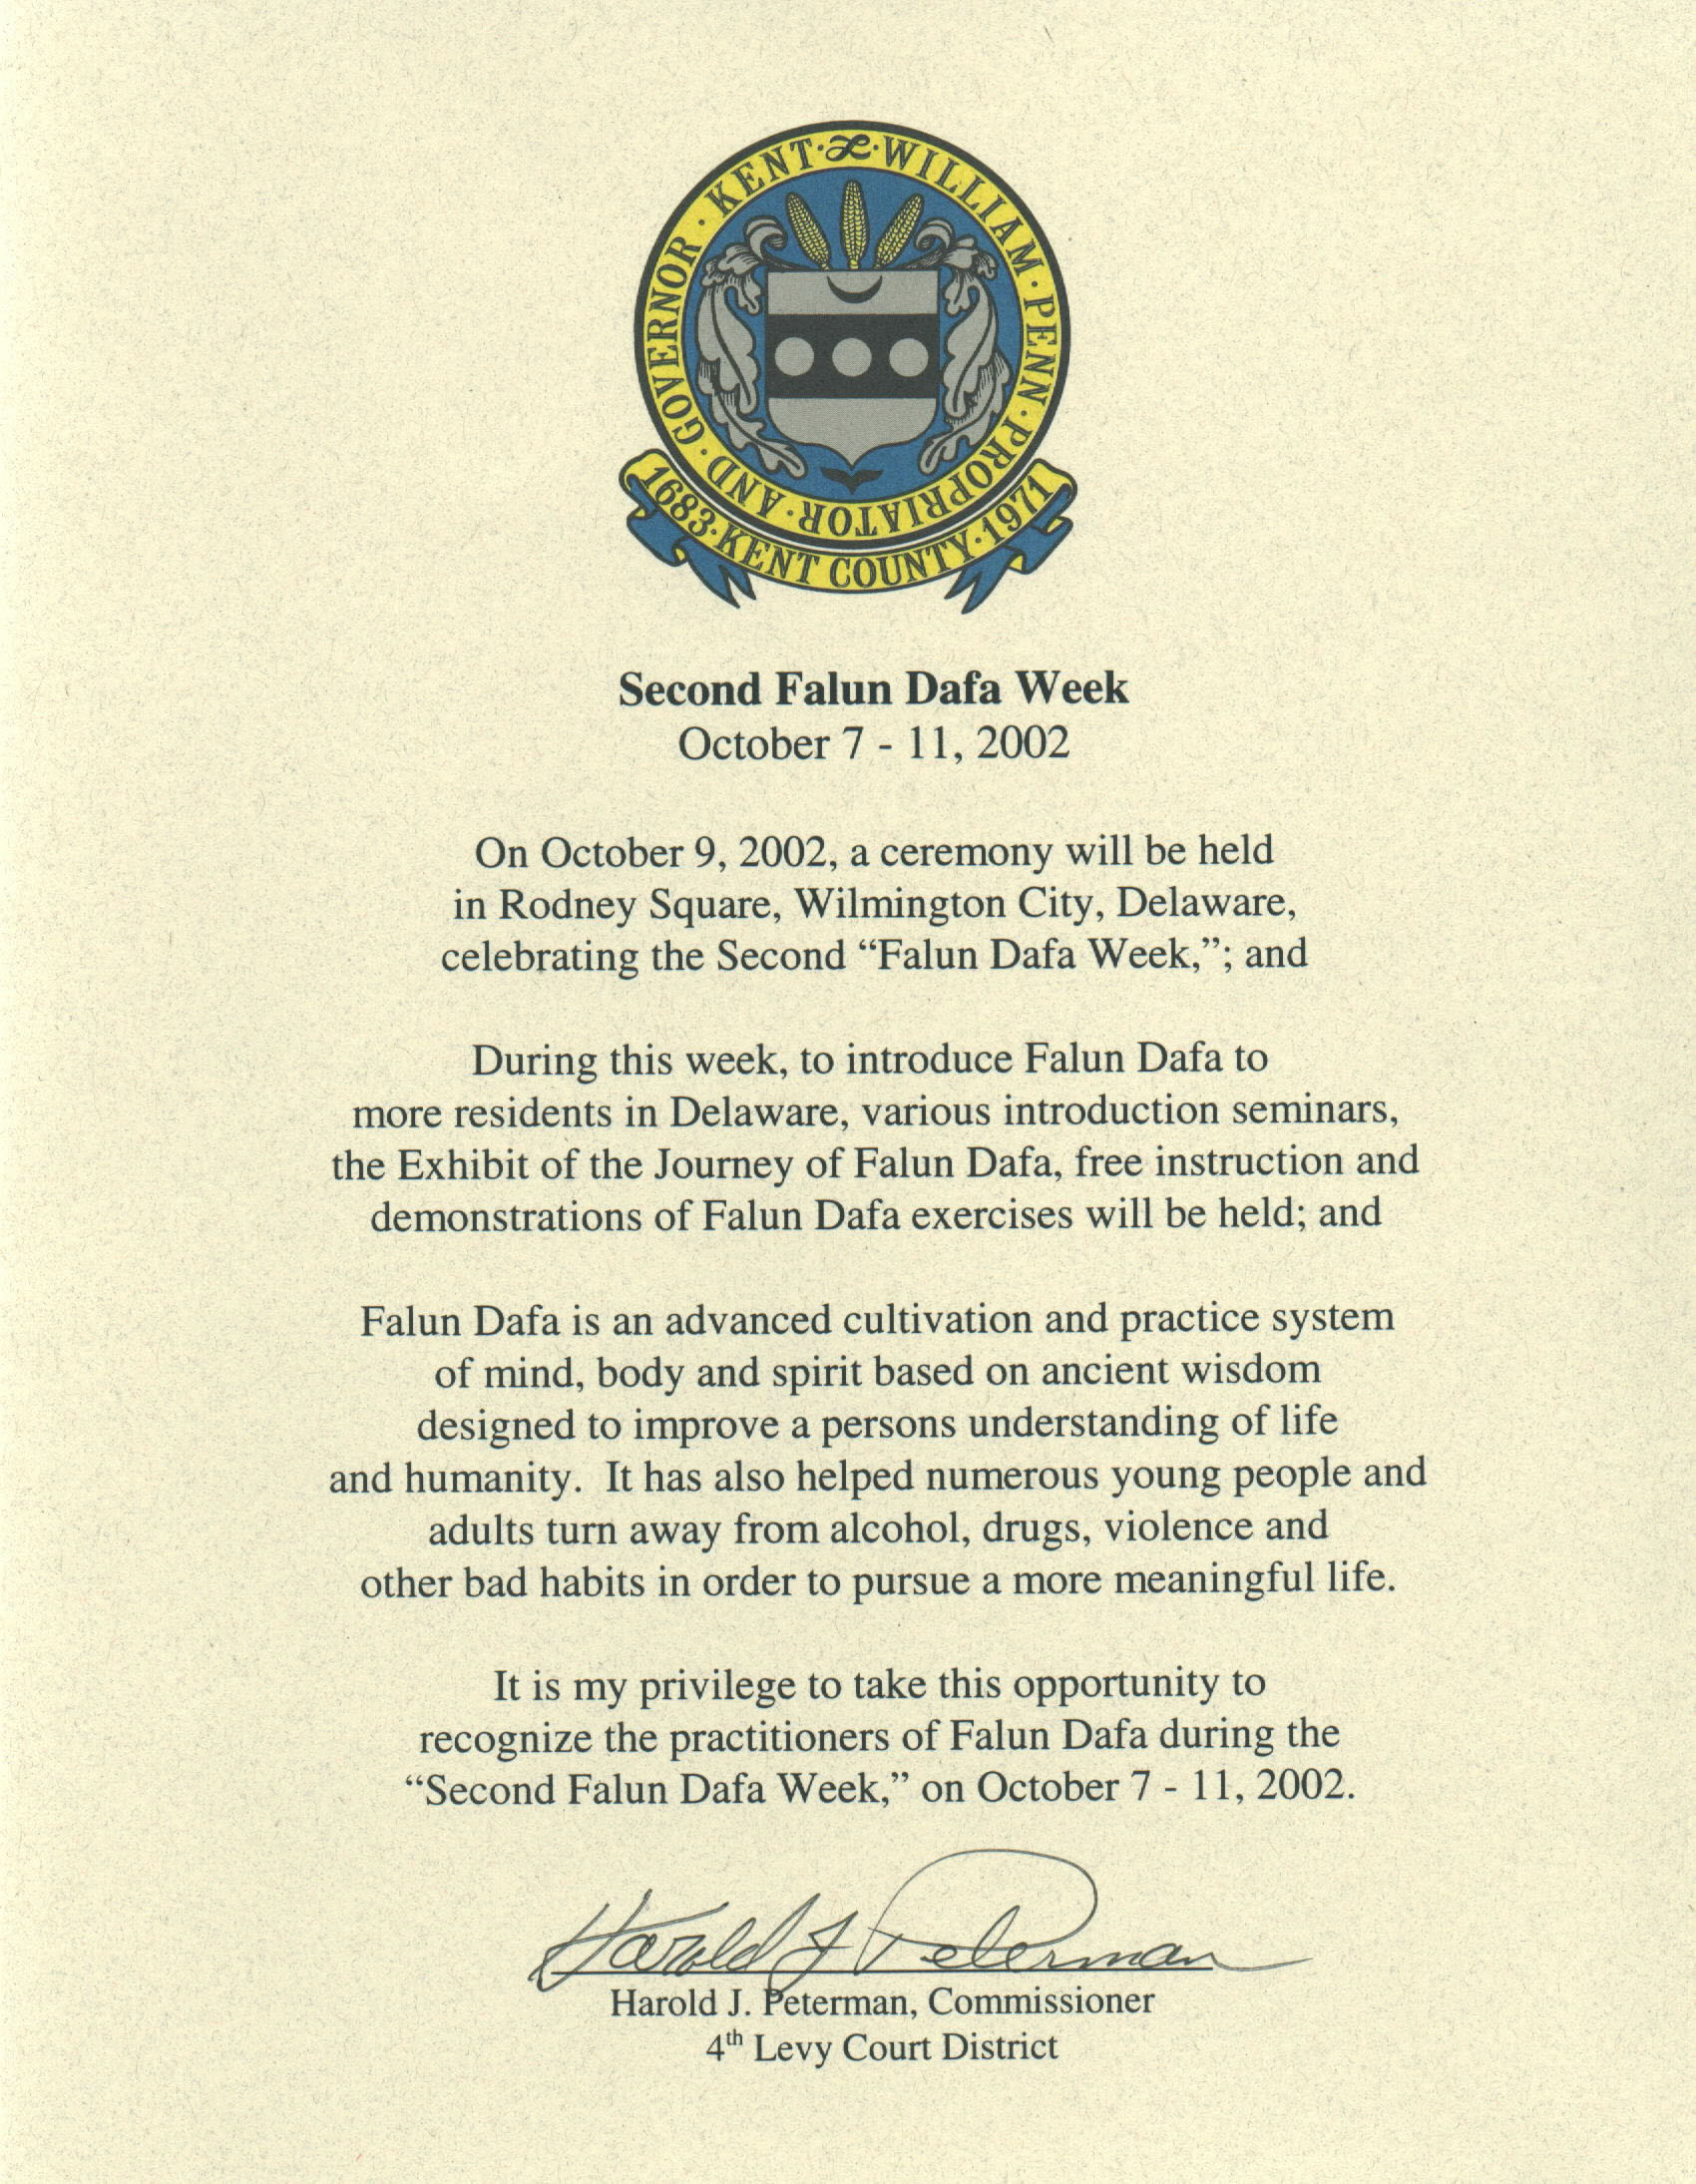 KENT · & · WILLIAM · PENN · PROPRIATOR · AND · GOVERNOR ·
1683 · KENT COUNTY · 1971
Second Falun Dafa Week
October 7 - 11, 2002
On October 9, 2002, a ceremony will be held
in Rodney Square, Wilmington City, Delaware,
celebrating the Second “Falun Dafa Week,”; and
During this week, to introduce Falun Dafa to
more residents in Delaware, various introduction seminars,
the Exhibit of the Journey of Falun Dafa, free instruction and
demonstrations of Falun Dafa exercises will be held; and
Falun Dafa is an advanced cultivation and practice system
of mind, body and spirit based on ancient wisdom
designed to improve a persons understanding of life
and humanity. It has also helped numerous young people and
adults turn away from alcohol, drugs, violence and
other bad habits in order to pursue a more meaningful life.
It is my privilege to take this opportunity to
recognize the practitioners of Falun Dafa during the
“Second Falun Dafa Week,” on October 7 - 11, 2002.
Harold J Peterman
Harold J. Peterman, Commissioner
4th Levy Court District